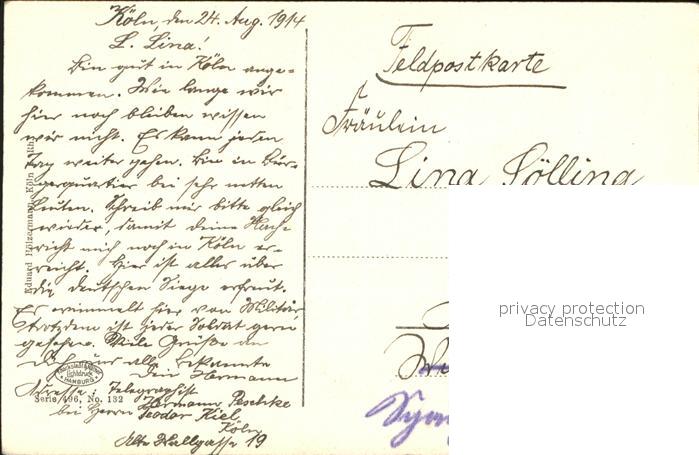 Köln, den 24. Aug. 1914
L. Lina!
Bin gut in Köln ange-
kommen. Wie lange wir
hier noch bleiben wissen
wir nicht. Es kann jeden
Tag weiter gehen. Bin in Bür-
gerquartier bei sehr netten
Leuten. Schreib mir bitte gleich
wieder, damit deine Nach-
richt mich noch in Köln er-
reicht. Hier ist alles über
die deutschen Siege erfreut.
Es wimmelt hier von Militär
Trotzdem ist jeder Soldat gern
gesehen. Viele Grüße an
Dich und alle Bekannte
Dein Hermann
Adresse: Telegraphist
Hermann Peschke
bei Herrn Teodor Kiel
Köln
Alte Wallgasse 19
Feldpostkarte
Fräulein
Lina Pölling
Eduard Hölzermann, Köln
HAMBURG
Serie 496, No. 132
privacy protection
Datenschutz